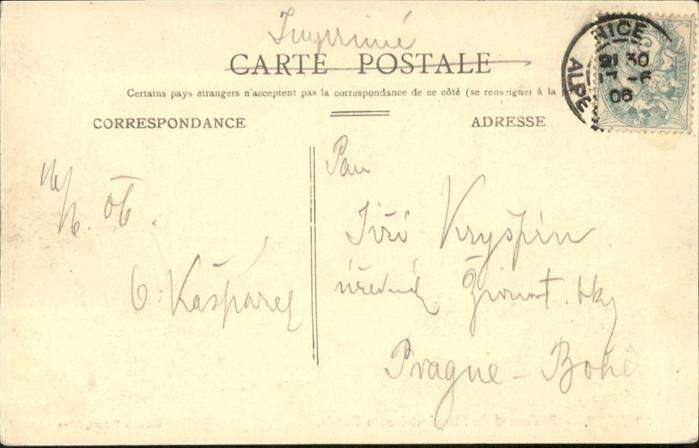 Imprimé
CARTE POSTALE
Certains pays étrangers n'acceptent pas la correspondance de ce côté (se renseigner à la
CORRESPONDANCE
ADRESSE
NICE
30
06
ALPE
Pan
06.
Jiří Kryšpín
O. Kašpárek
úředník Živnost. bky
Prague - Bohe